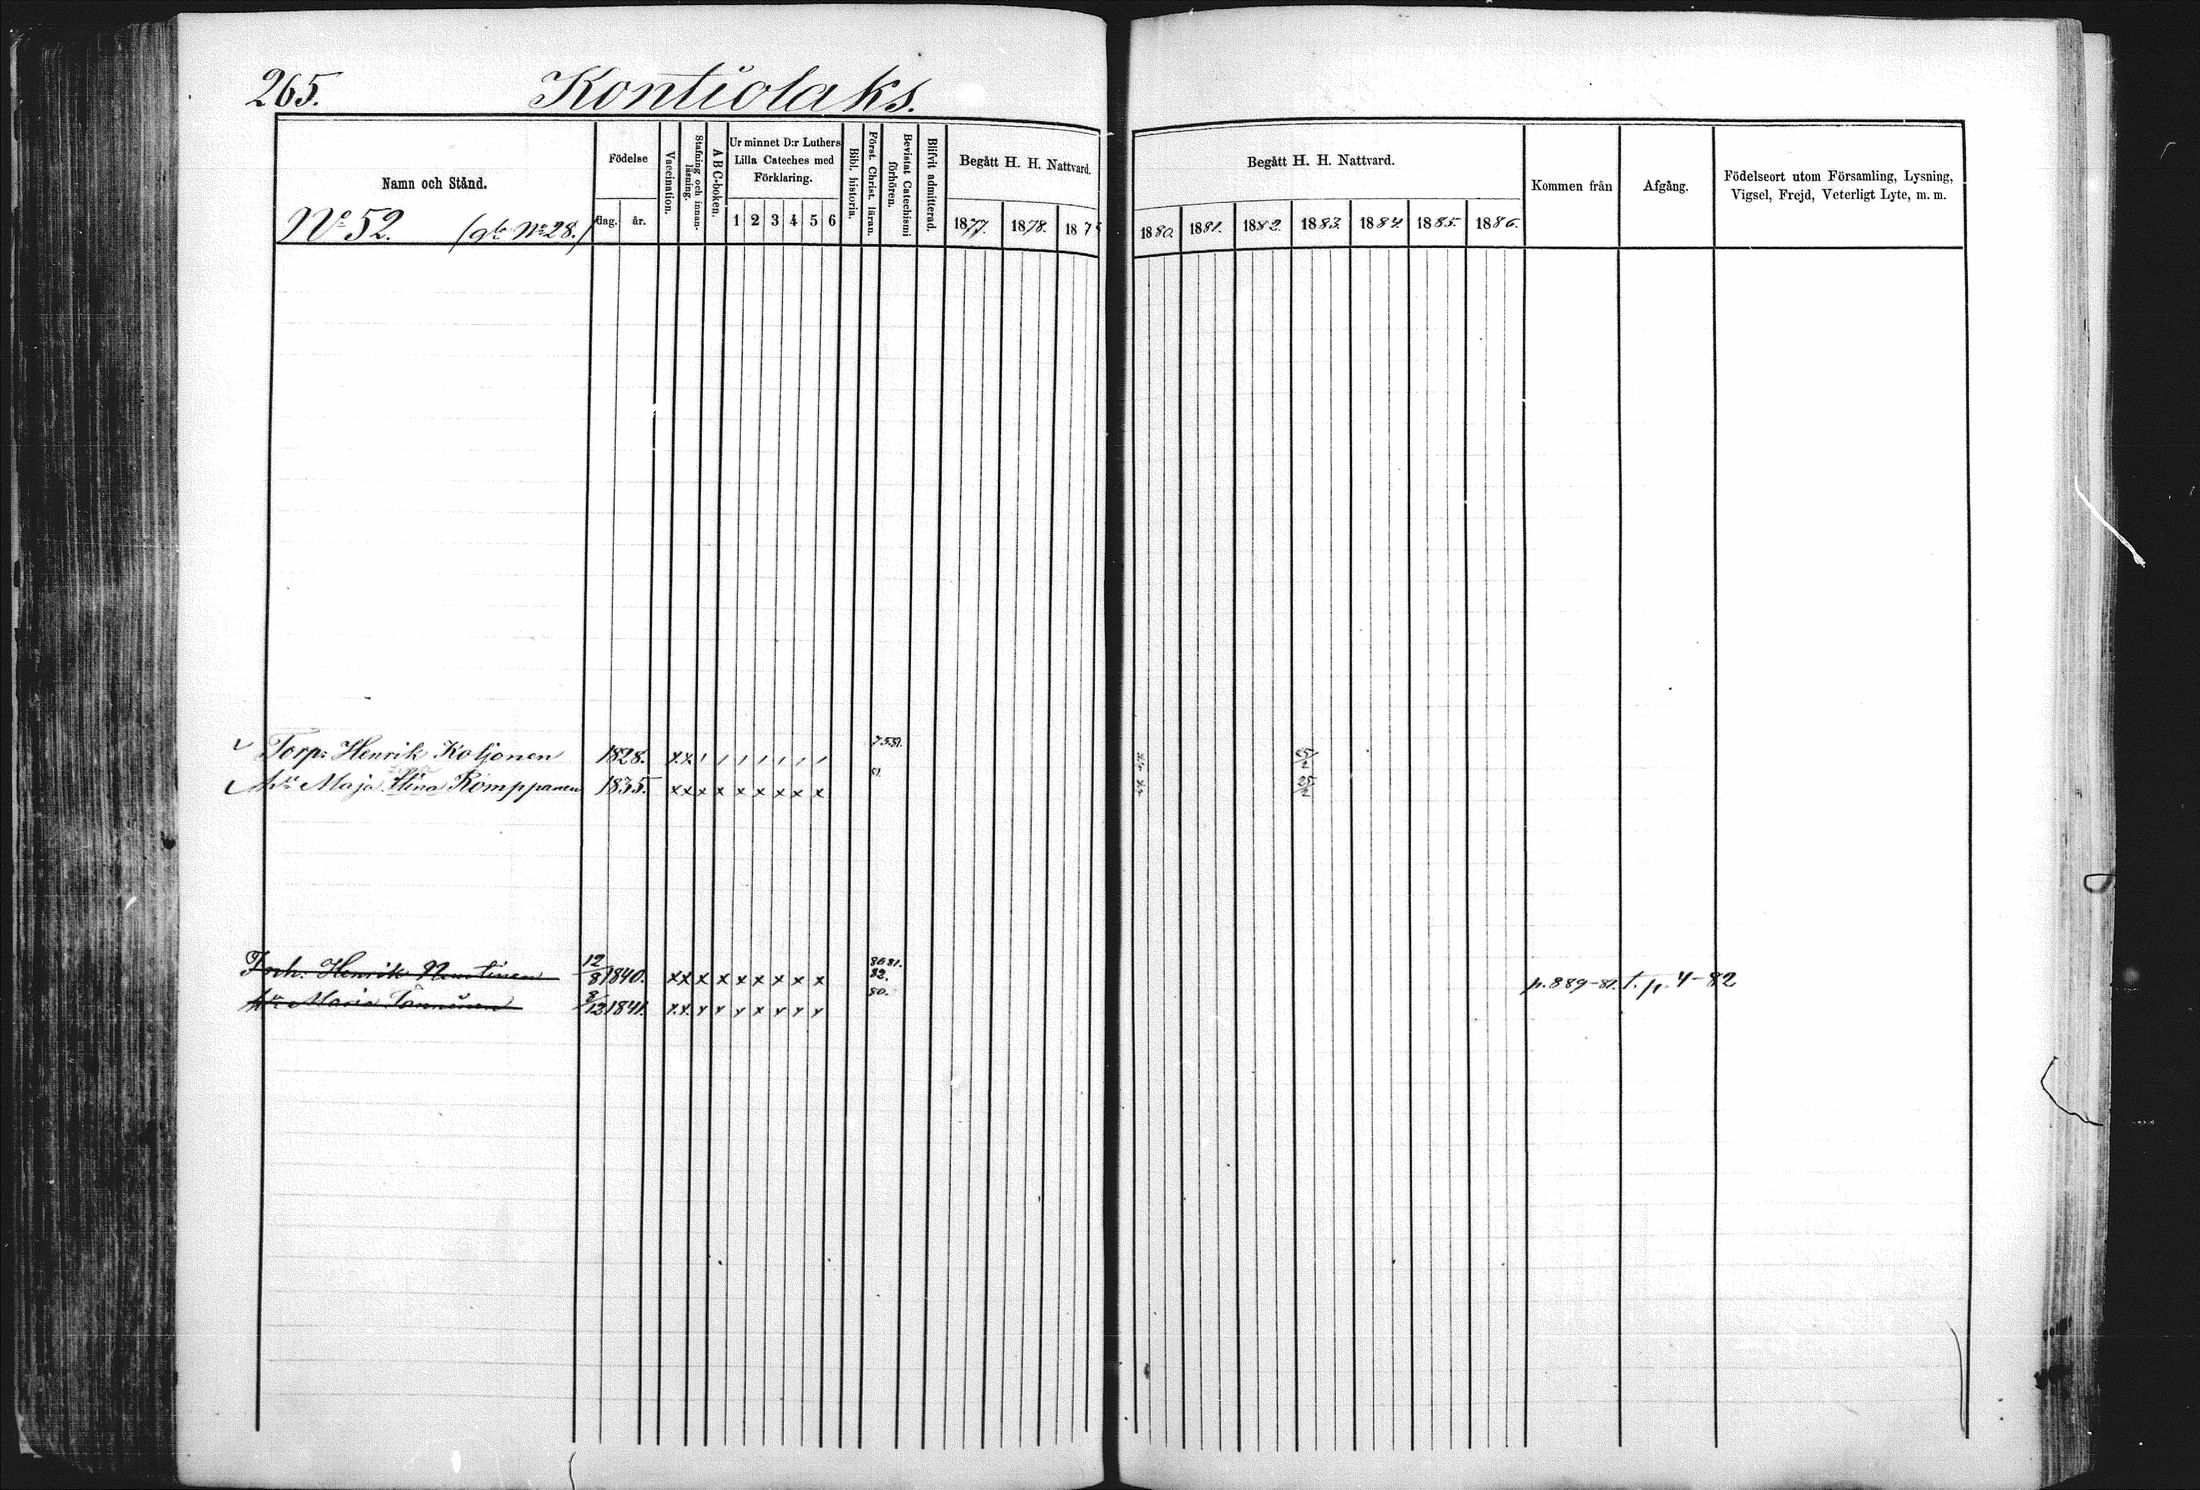 265. Kontiolaks.
Namn och Stånd.
Födelse
dag. år.
Vaccination.
Stafning och innanläsning.
A B C-boken.
Ur minnet D:r Luthers Lilla Cateches med Förklaring.
1 2 3 4 5 6
Bibl. historia.
Först. Christ. läran.
Bevistat Catechismi förhören.
Blifvit admitterad.
Begått H. H. Nattvard.
1877. 1878. 187
Begått H. H. Nattvard.
1880. 1881. 1882. 1883. 1884. 1885. 1886.
Kommen från
Afgång.
Födelseort utom Församling, Lysning, Vigsel, Frejd, Veterligt Lyte, m. m.
No 52. (gl. No 28.)
Torp: Henrik Koljonen 1828. x x / / / / / / /
Maja Stina Romppanen 1835. x x x x x x x x x
Henrik 12/8 1840. x x x x x x x x x 80 81. 82. p. 889-81. t. p. 4-82
Maria 3/12 1841. x x x x x x x x x 80.